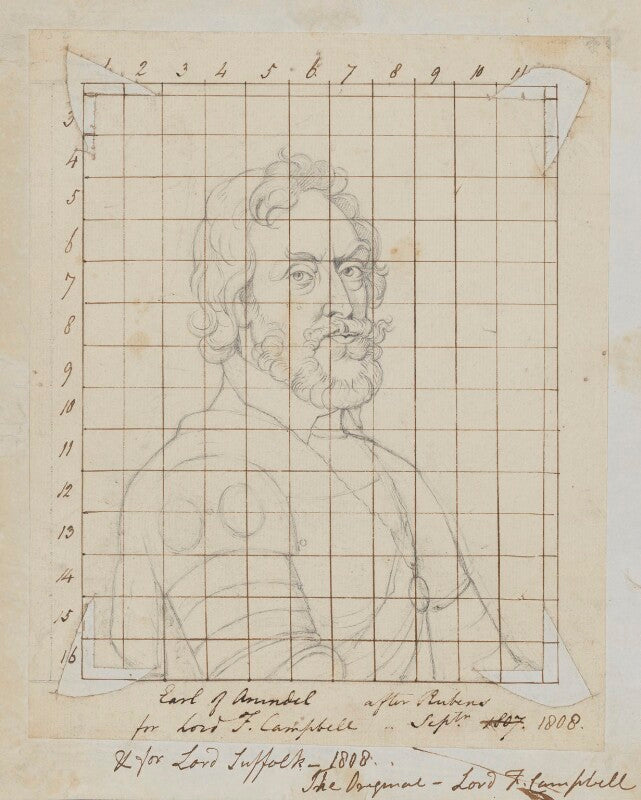 1 2 3 4 5 6 7 8 9 10 11
3
4
5
6
7
8
9
10
11
12
13
14
15
16
Earl of Arundel after Rubens
for Lord F. Campbell .. Septr. 1807. 1808.
& for Lord Suffolk – 1808..
The Original – Lord F. Campbell